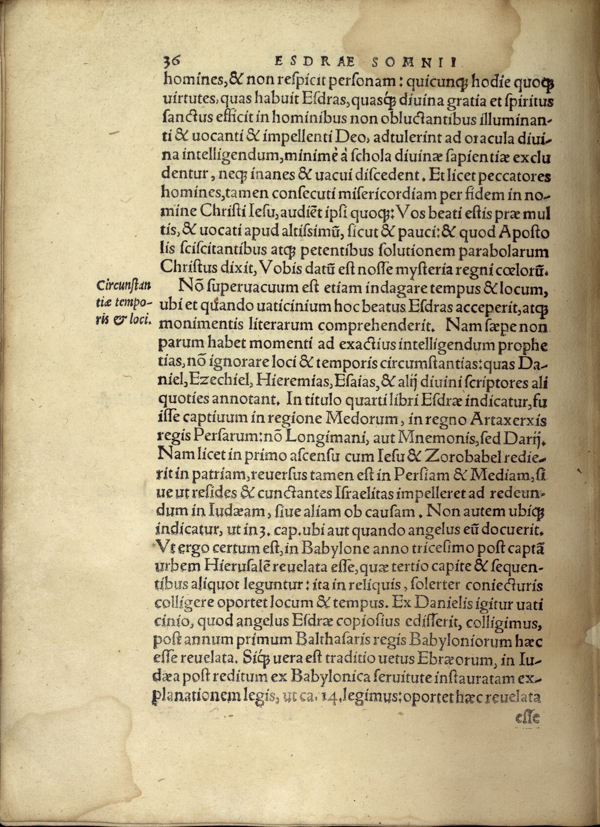 36 ESDRAE SOMNII
homines, & non respicit personam: quicunqꝫ hodie quoqꝫ
uirtutes, quas habuit Esdras, quasqꝫ diuina gratia et spiritus
sanctus efficit in hominibus non obluctantibus illuminan-
ti & uocanti & impellenti Deo, adtulerint ad oracula diui-
na intelligendum, minimè à schola diuinæ sapientiæ exclu
dentur, neqꝫ inanes & uacui discedent. Et licet peccatores
homines, tamen consecuti misericordiam per fidem in no-
mine Christi Iesu, audiẽt ipsi quoqꝫ: Vos beati estis præ mul
tis, & uocati apud altissimũ, sicut & pauci: & quod Aposto
lis sciscitantibus atqꝫ petentibus solutionem parabolarum
Christus dixit, Vobis datũ est nosse mysteria regni cœlorũ.
Circunstan
tiæ tempo-
ris & loci.
Nõ superuacuum est etiam indagare tempus & locum,
ubi et quãndo uaticinium hoc beatus Esdras acceperit, atqꝫ
monimentis literarum comprehenderit. Nam sæpe non
parum habet momenti ad exactius intelligendum prophe
tias, nõ ignorare loci & temporis circumstantias: quas Da-
niel, Ezechiel, Hieremias, Esaias, & alij diuini scriptores ali
quoties annotant. In titulo quarti libri Esdræ indicatur, fu
isse captiuum in regione Medorum, in regno Artaxerxis
regis Persarum: nõ Longimani, aut Mnemonis, sed Darij.
Nam licet in primo ascensu cum Iesu & Zorobabel redie-
rit in patriam, reuersus tamen est in Persiam & Mediam, si
ue ut resides & cunctantes Israelitas impelleret ad redeun-
dum in Iudæam, siue aliam ob causam. Non autem ubiqꝫ
indicatur, ut in 3. cap. ubi aut quando angelus eũ docuerit.
Vt ergo certum est, in Babylone anno tricesimo post captã
urbem Hierusalẽ reuelata esse, quæ tertio capite & sequen-
tibus aliquot leguntur: ita in reliquis, solerter coniecturis
colligere oportet locum & tempus. Ex Danielis igitur uati
cinio, quod angelus Esdræ copiosius edisserit, colligimus,
post annum primum Balthasaris regis Babyloniorum hæc
esse reuelata. Siqꝫ uera est traditio uetus Ebræorum, in Iu-
dæa post reditum ex Babylonica seruitute instauratam ex-
planationem legis, ut ca. 14. legimus: oportet hæc reuelata
esse